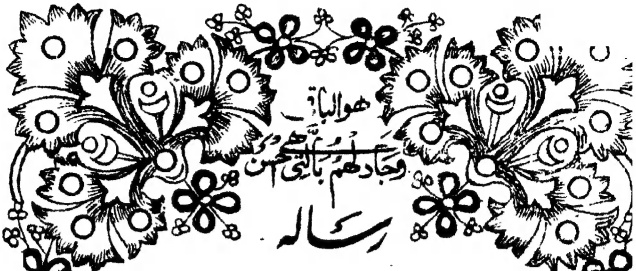 هوالباقی
وَجَادِلْهُمْ بِالَّتِی هِیَ اَحْسَنُ
رسالہ